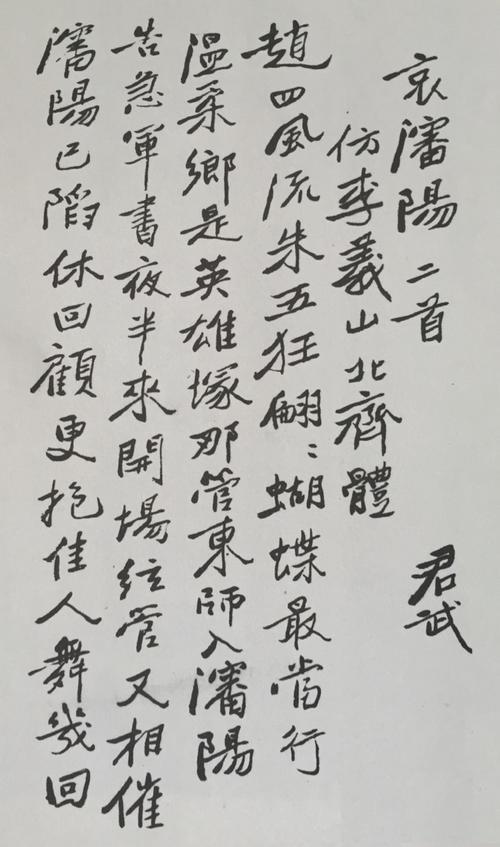 哀瀋陽二首
仿李義山北齊體
君武
趙四風流朱五狂翩〻蝴蝶最當行
溫柔鄉是英雄塚那管東師入瀋陽
告急軍書夜半來開場絃管又相催
瀋陽已陷休回顧更抱佳人舞幾回